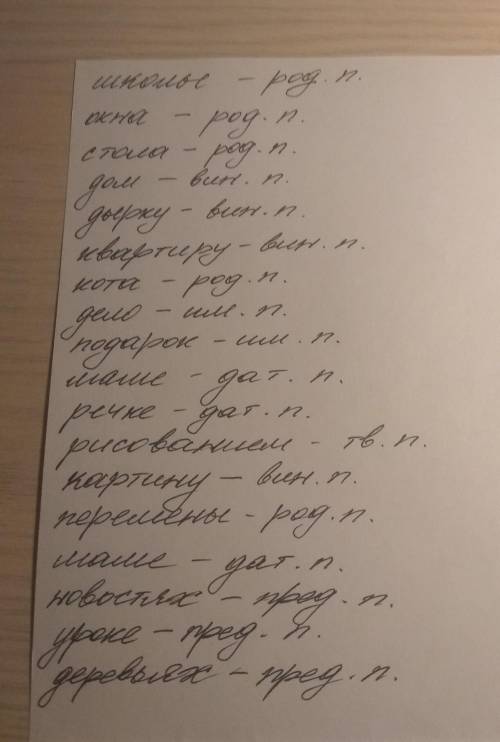 школы - род. п.
окна - род. п.
стола - род. п.
дом - вин. п.
дырку - вин. п.
квартиру - вин. п.
кота - род. п.
дело - им. п.
подарок - им. п.
маме - дат. п.
речке - дат. п.
рисованием - тв. п.
картину - вин. п.
перемены - род. п.
маме - дат. п.
новостях - пред. п.
уроке - пред. п.
деревьях - пред. п.